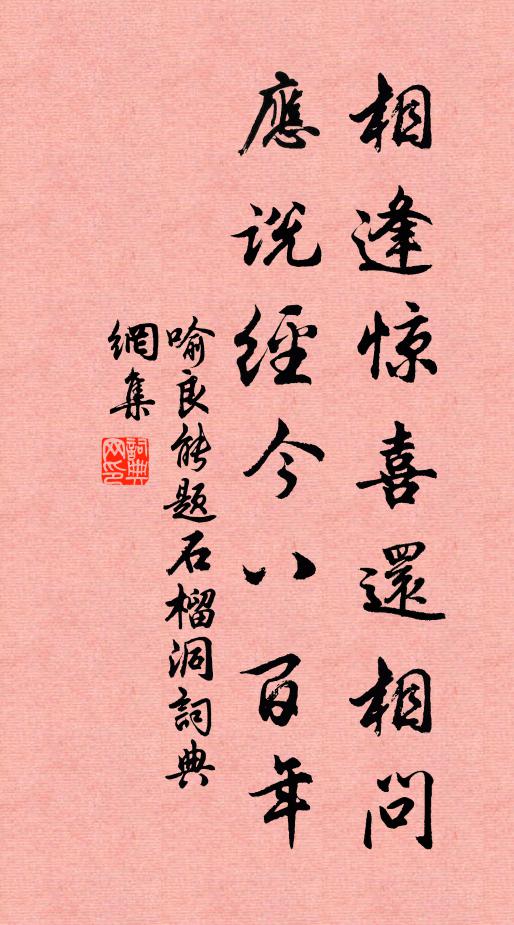 相逢惊喜還相問
應説經今八百年
喻良能题石榴洞詞典
網集
詞典
网印